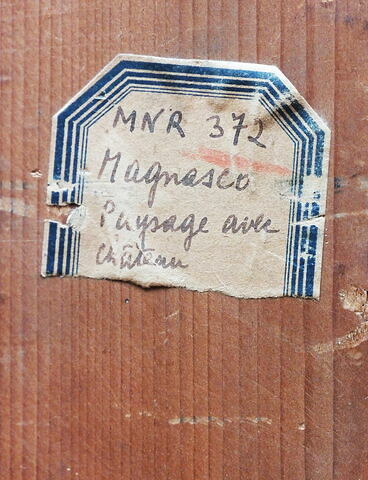 MNR 372
Magnasco
Paysage avec
château